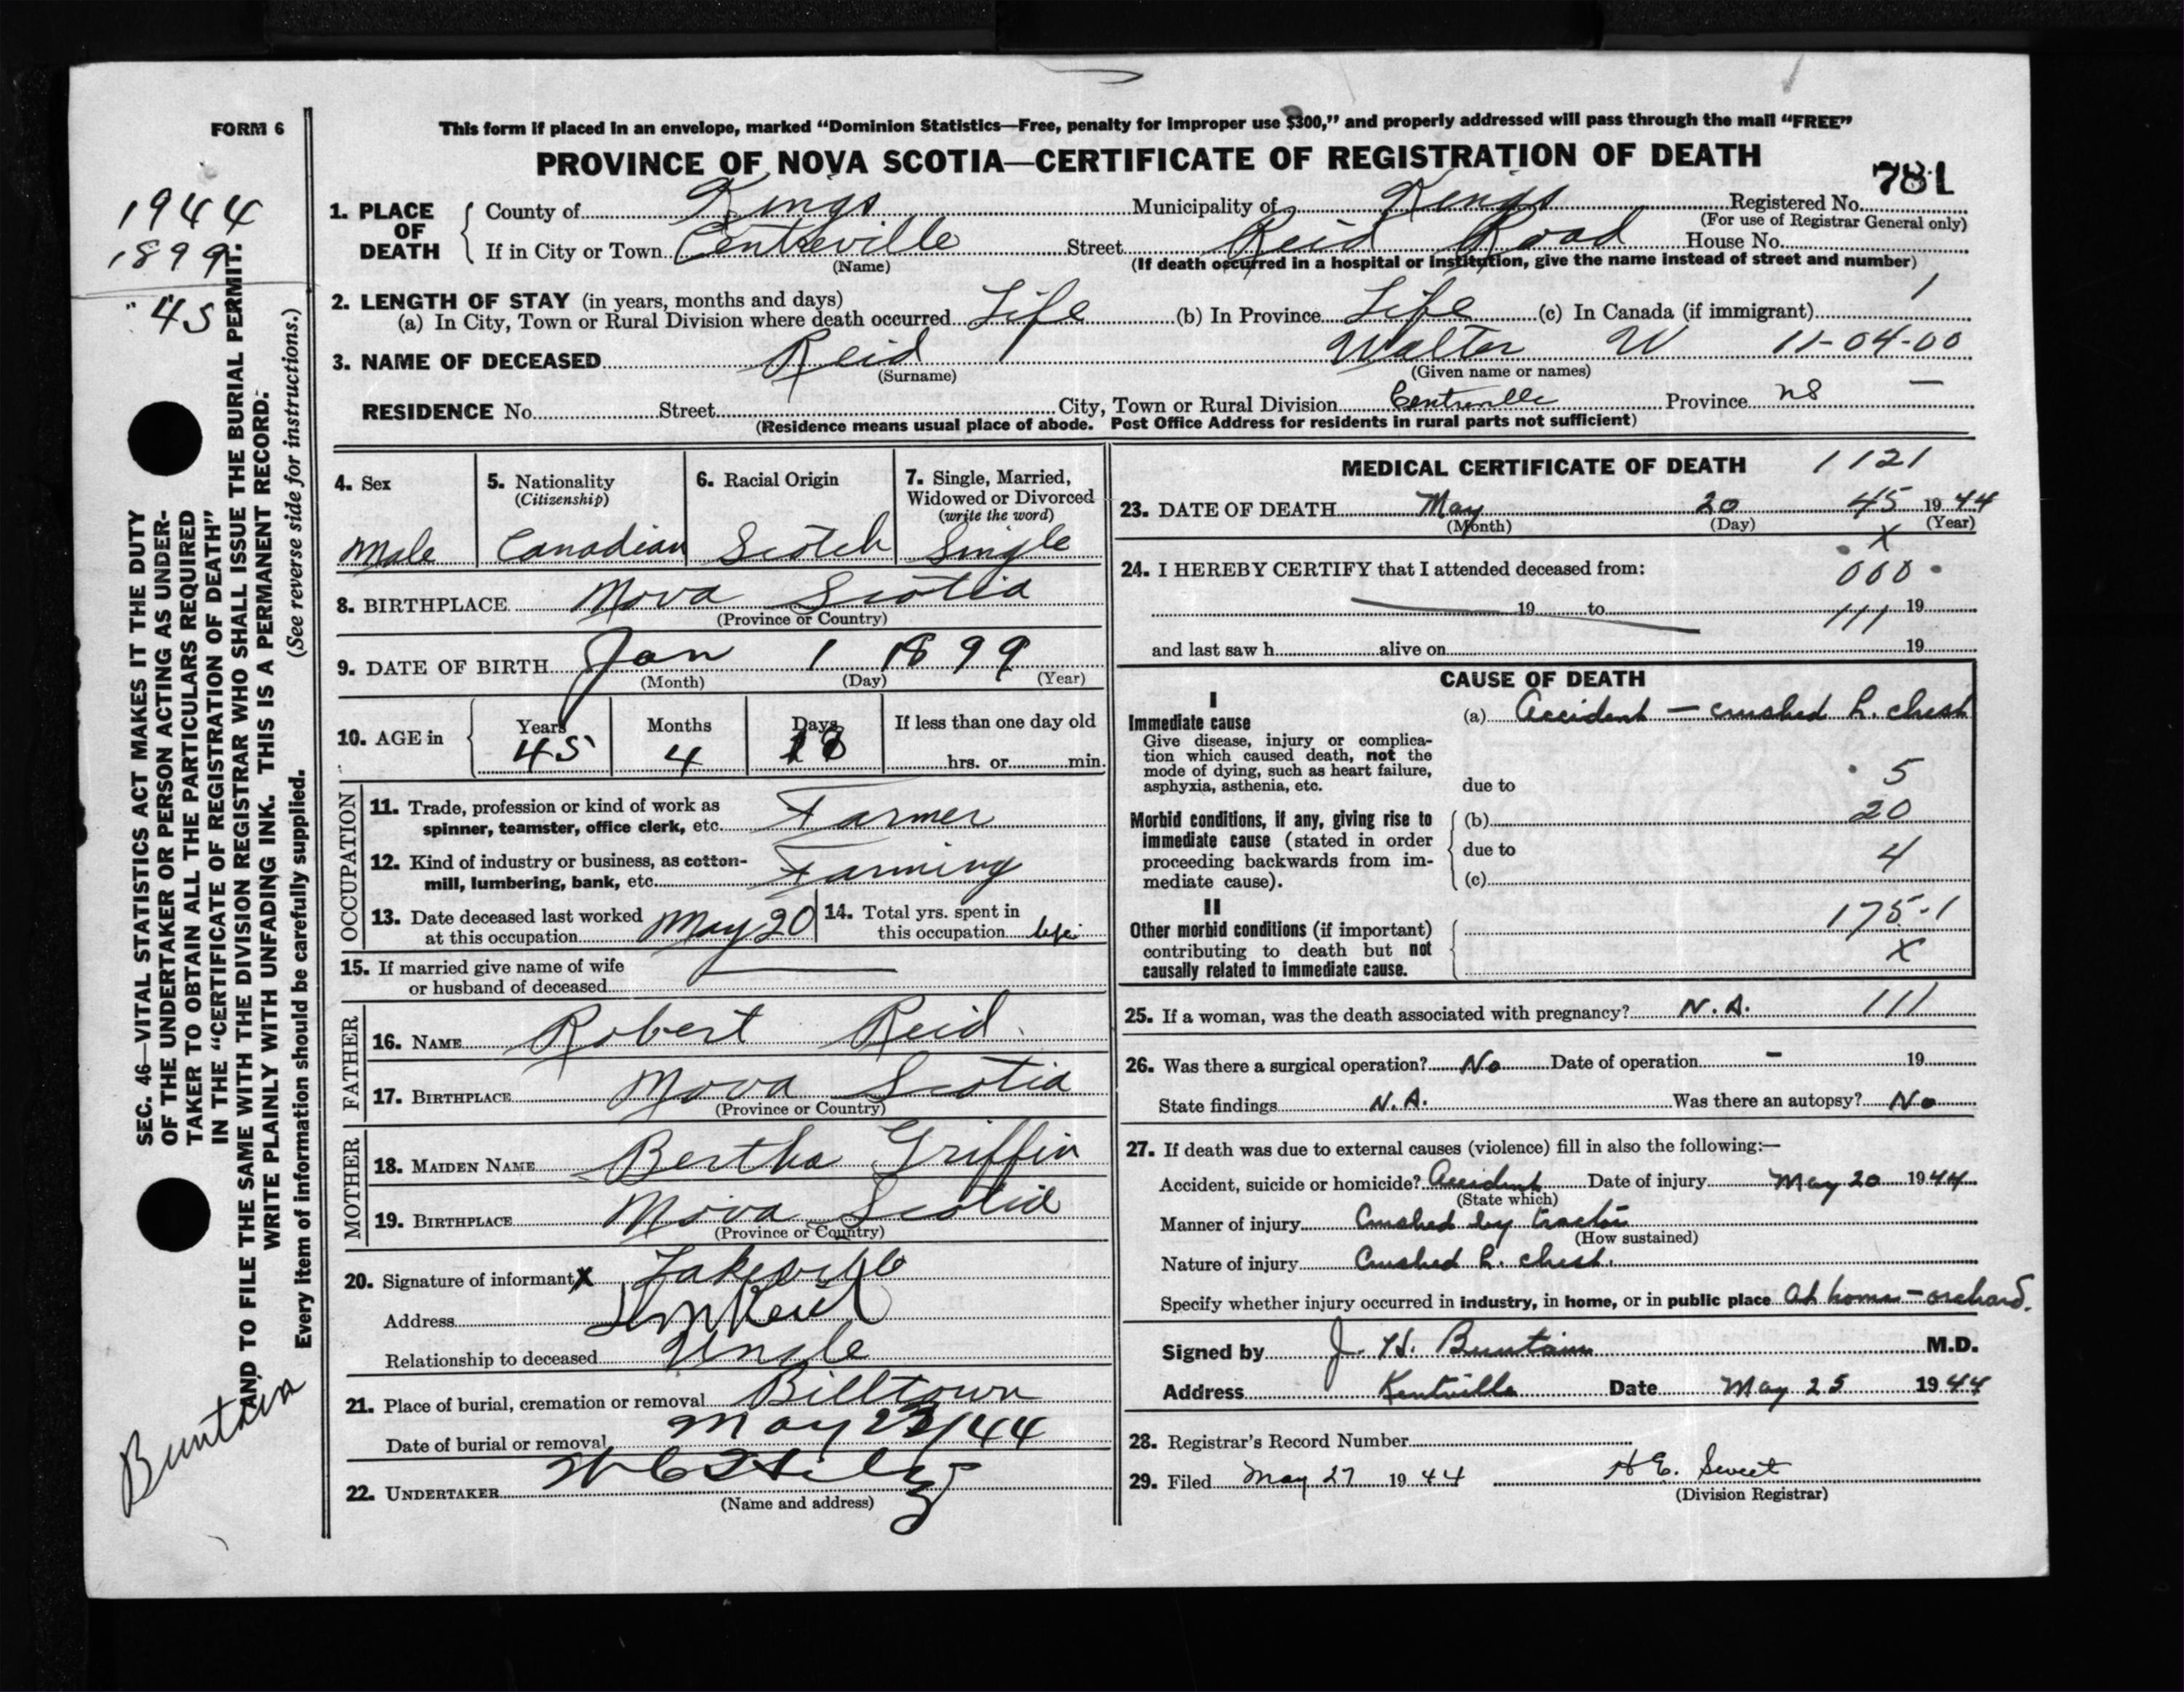 FORM 6
This form if placed in an envelope, marked “Dominion Statistics—Free, penalty for improper use $300,” and properly addressed will pass through the mail “FREE”
PROVINCE OF NOVA SCOTIA—CERTIFICATE OF REGISTRATION OF DEATH
781
1944
1899
45
1. PLACE OF DEATH
County of Kings Municipality of Kings Registered No.
(For use of Registrar General only)
If in City or Town Centreville Street Reid Road House No.
(Name) (If death occurred in a hospital or institution, give the name instead of street and number)
2. LENGTH OF STAY (in years, months and days) 1
(a) In City, Town or Rural Division where death occurred Life (b) In Province Life (c) In Canada (if immigrant)
3. NAME OF DECEASED Reid Walter W 11-04-00
(Surname) (Given name or names)
RESIDENCE No. Street City, Town or Rural Division Centreville Province NS —
(Residence means usual place of abode. Post Office Address for residents in rural parts not sufficient)
4. Sex
Male
5. Nationality
(Citizenship)
Canadian
6. Racial Origin
Scotch
7. Single, Married,
Widowed or Divorced
(write the word)
Single
8. BIRTHPLACE Nova Scotia
(Province or Country)
9. DATE OF BIRTH Jan 1 1899
(Month) (Day) (Year)
10. AGE in
Years Months Days If less than one day old
45 4 hrs. or min.
OCCUPATION
11. Trade, profession or kind of work as
spinner, teamster, office clerk, etc. Farmer
12. Kind of industry or business, as cotton-
mill, lumbering, bank, etc. Farming
13. Date deceased last worked
at this occupation May 20
14. Total yrs. spent in
this occupation life
15. If married give name of wife
or husband of deceased —
FATHER
16. NAME Robert Reid
17. BIRTHPLACE Nova Scotia
(Province or Country)
MOTHER
18. MAIDEN NAME Bertha Griffin
19. BIRTHPLACE Nova Scotia
(Province or Country)
20. Signature of informant X Lakeville
Address Reid
Relationship to deceased Uncle
21. Place of burial, cremation or removal Billtown
Date of burial or removal May 23/44
22. UNDERTAKER
(Name and address)
MEDICAL CERTIFICATE OF DEATH 1121
23. DATE OF DEATH May 20 45 1944
(Month) (Day) (Year)
X
24. I HEREBY CERTIFY that I attended deceased from: 000
19 to 111 19
and last saw h alive on 19
CAUSE OF DEATH
I
Immediate cause
Give disease, injury or complica-
tion which caused death, not the
mode of dying, such as heart failure,
asphyxia, asthenia, etc.
(a) Accident — crushed L. chest
due to 5
Morbid conditions, if any, giving rise to
immediate cause (stated in order
proceeding backwards from im-
mediate cause).
(b) 20
due to 4
(c)
II
Other morbid conditions (if important)
contributing to death but not
causally related to immediate cause.
175-1
X
25. If a woman, was the death associated with pregnancy? N.A. 111
26. Was there a surgical operation? No Date of operation - 19
State findings N.A. Was there an autopsy? No
27. If death was due to external causes (violence) fill in also the following:—
Accident, suicide or homicide? Accident Date of injury May 20 1944
(State which)
Manner of injury Crushed by tractor
(How sustained)
Nature of injury Crushed L. chest.
Specify whether injury occurred in industry, in home, or in public place At home - orchard.
Signed by J. H. Buntain M.D.
Address Kentville Date May 25 1944
28. Registrar's Record Number
29. Filed May 27 1944 H E. Sweet
(Division Registrar)
SEC. 46—VITAL STATISTICS ACT MAKES IT THE DUTY
OF THE UNDERTAKER OR PERSON ACTING AS UNDER-
TAKER TO OBTAIN ALL THE PARTICULARS REQUIRED
IN THE “CERTIFICATE OF REGISTRATION OF DEATH”
AND TO FILE THE SAME WITH THE DIVISION REGISTRAR WHO SHALL ISSUE THE BURIAL PERMIT.
WRITE PLAINLY WITH UNFADING INK. THIS IS A PERMANENT RECORD.
(See reverse side for instructions.)
Every item of information should be carefully supplied.
Buntain